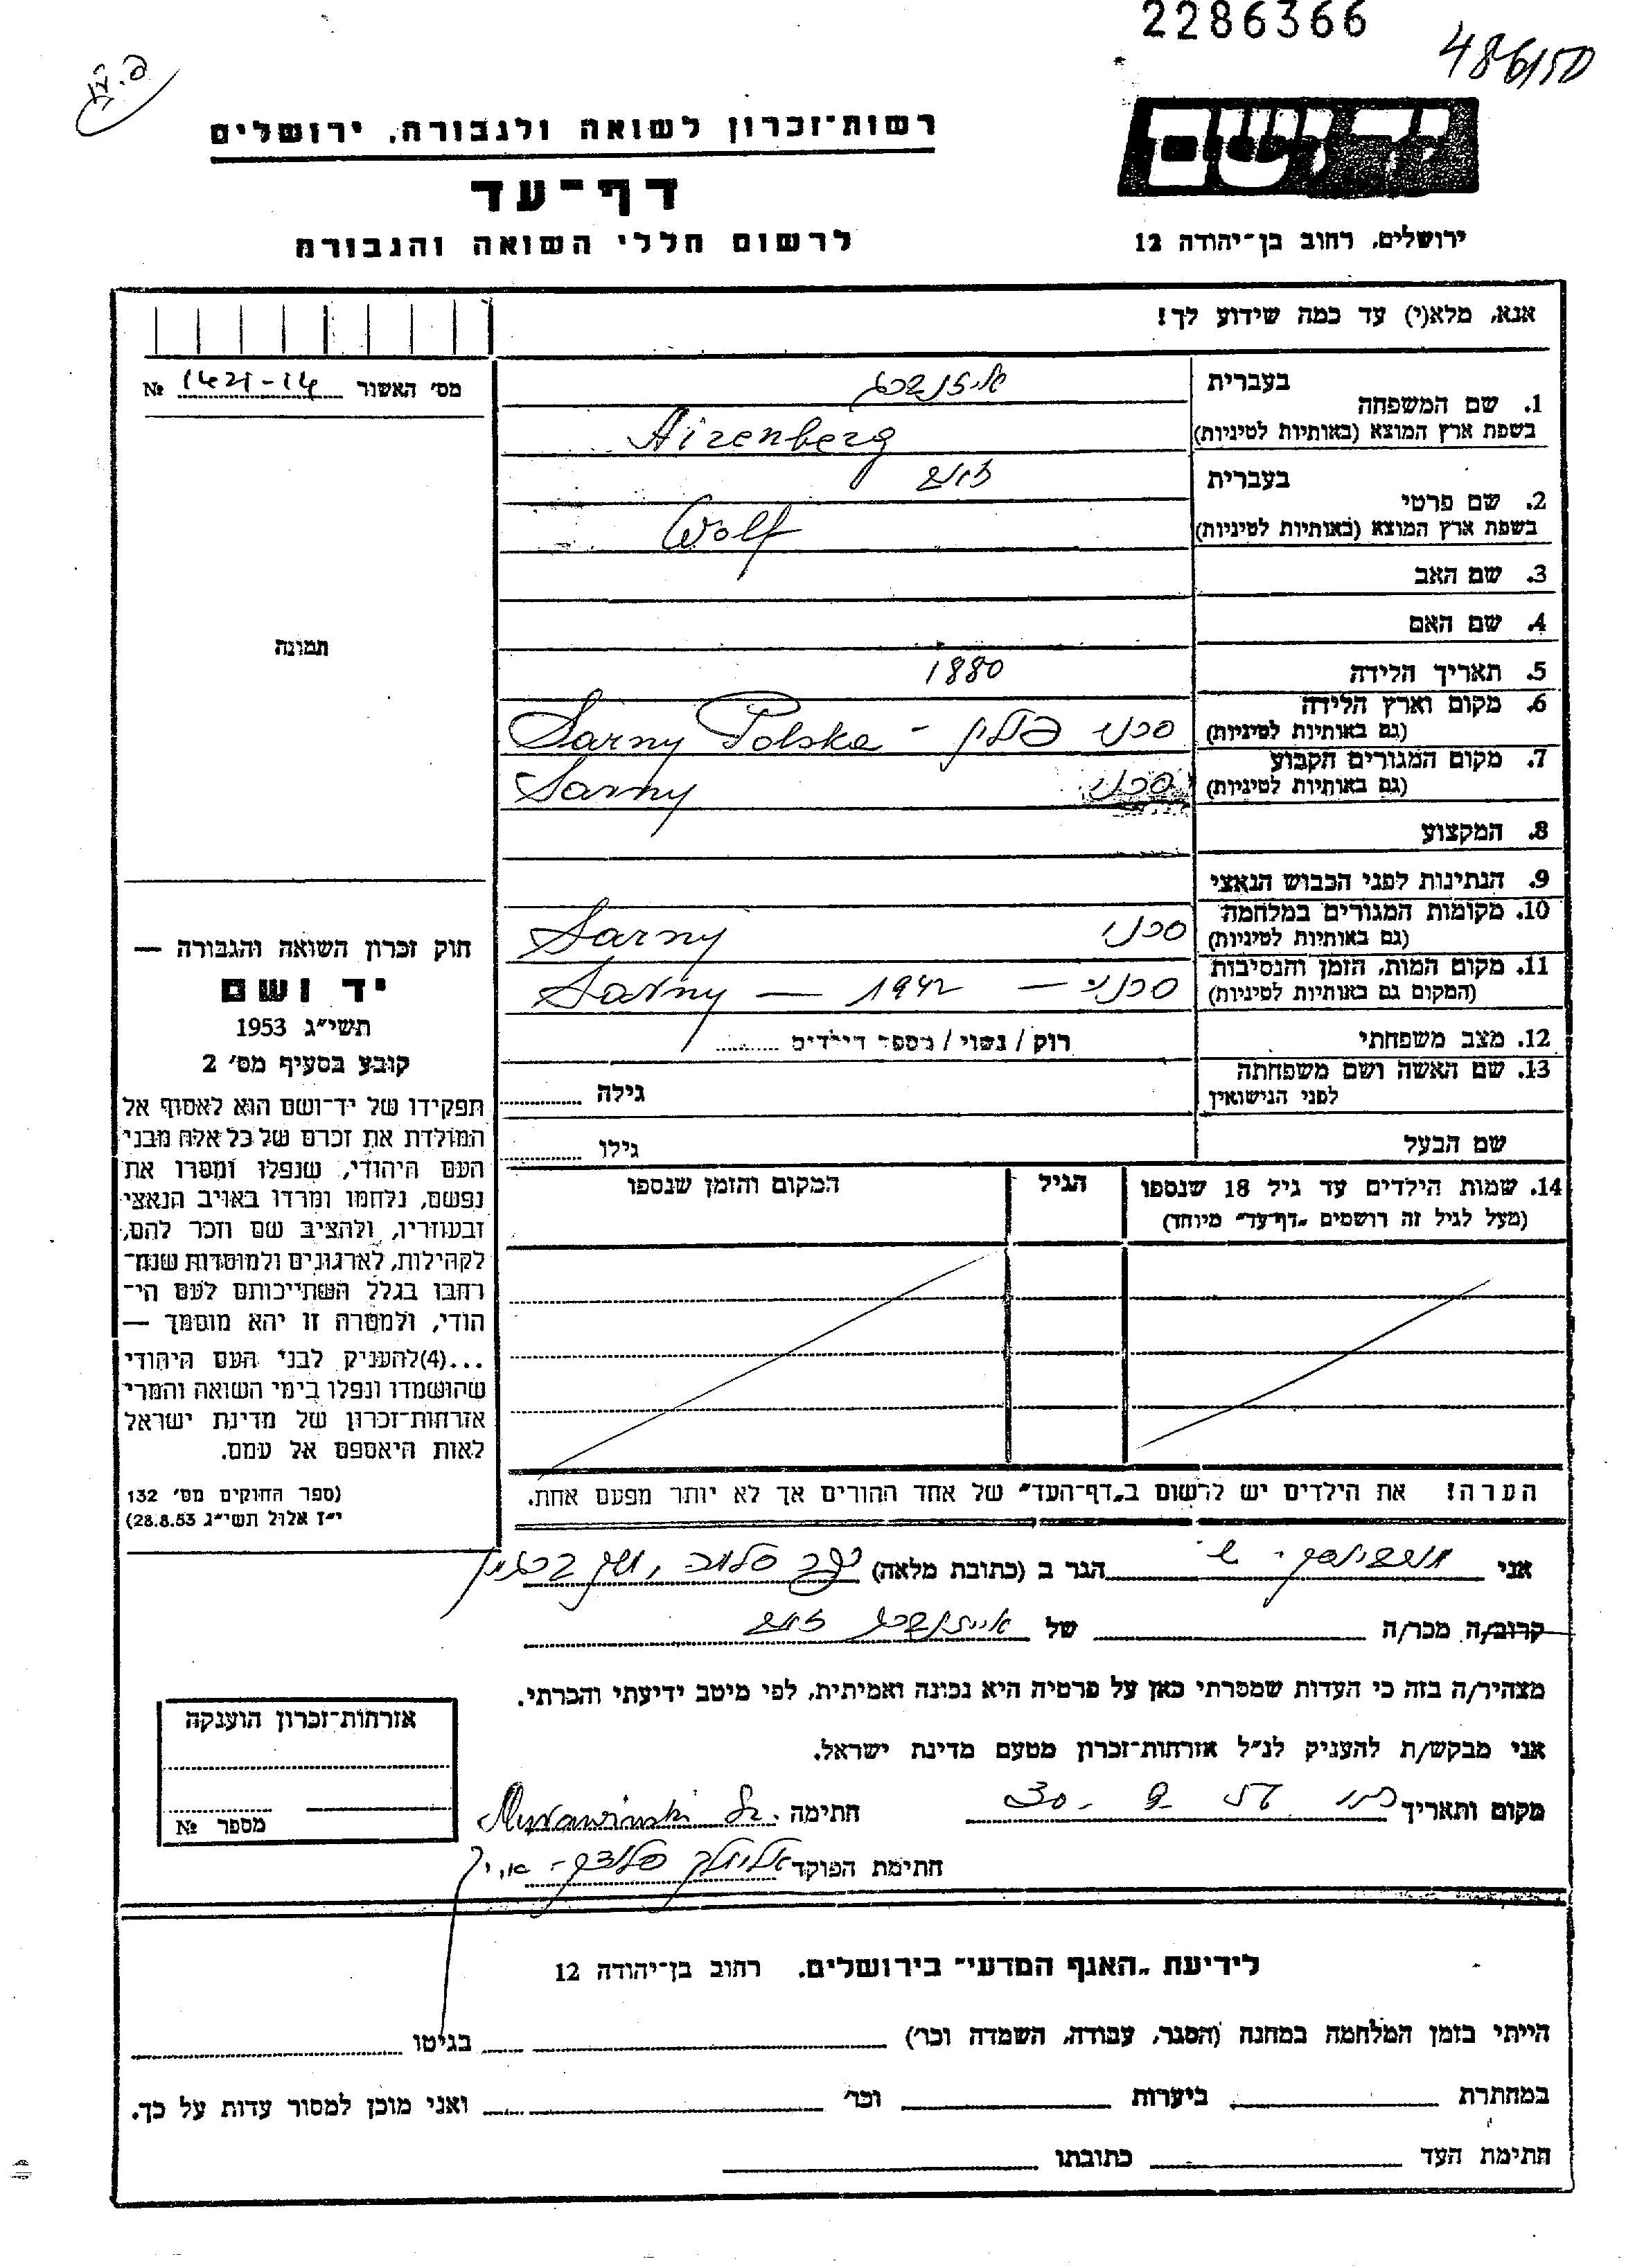 2286366
486/50
יד ושם
ירושלים, רחוב בן־יהודה 12
רשות־זכרון לשואה ולגבורה, ירושלים
דף־עד
לרשום חללי השואה והגבורה
אנא, מלא(י) עד כמה שידוע לך!
מס׳ האשור 1421-14 №
תמונה
1. שם המשפחה
בעברית איזנברג
בשפת ארץ המוצא (באותיות לטיניות) Aizenberg
2. שם פרטי
בעברית זאב
בשפת ארץ המוצא (באותיות לטיניות) Wolf
3. שם האב
4. שם האם
5. תאריך הלידה 1880
6. מקום וארץ הלידה
(גם באותיות לטיניות) סרני פולין - Sarny Polska
7. מקום המגורים הקבוע
(גם באותיות לטיניות) סרני Sarny
8. המקצוע
9. הנתינות לפני הכבוש הנאצי
10. מקומות המגורים במלחמה
(גם באותיות לטיניות) סרני Sarny
11. מקום המות, הזמן והנסיבות
(המקום גם באותיות לטיניות) סרני — 1942 — Sarny
12. מצב משפחתי רוק / נשוי / מספר הילדים
13. שם האשה ושם משפחתה
לפני הנישואין גילה
שם הבעל גילו
14. שמות הילדים עד גיל 18 שנספו הגיל המקום והזמן שנספו
(מעל לגיל זה רושמים „דף־עד״ מיוחד)
הערה! את הילדים יש לרשום ב„דף־העד״ של אחד ההורים אך לא יותר מפעם אחת.
חוק זכרון השואה והגבורה —
יד ושם
תשי״ג 1953
קובע בסעיף מס׳ 2
תפקידו של יד־ושם הוא לאסוף אל
המולדת את זכרם של כל אלה מבני
העם היהודי, שנפלו ומסרו את
נפשם, נלחמו ומרדו באויב הנאצי
ובעוזריו, ולהציב שם וזכר להם,
לקהילות, לארגונים ולמוסדות שנח־
רבו בגלל השתייכותם לעם הי־
הודי, ולמטרה זו יהא מוסמך —
...(4)להעניק לבני העם היהודי
שהושמדו ונפלו בימי השואה והמרי
אזרחות־זכרון של מדינת ישראל
לאות היאספם אל עמם.
(ספר החוקים מס׳ 132
י״ז אלול תשי״ג 28.8.53)
אני הגר ב (כתובת מלאה)
קרוב/ה מכר/ה של איזנברג זאב
מצהיר/ה בזה כי העדות שמסרתי כאן על פרטיה היא נכונה ואמיתית, לפי מיטב ידיעתי והכרתי.
אני מבקש/ת להעניק לנ״ל אזרחות־זכרון מטעם מדינת ישראל.
מקום ותאריך 30. 9 חתימה
חתימת הפוקד
אזרחות־זכרון הוענקה
מספר №
לידיעת „האגף המדעי״ בירושלים, רחוב בן־יהודה 12
הייתי בזמן המלחמה במחנה (הסגר, עבודה, השמדה וכו׳) בגיטו
במחתרת ביערות וכו׳ ואני מוכן למסור עדות על כך.
חתימת העד כתובתו